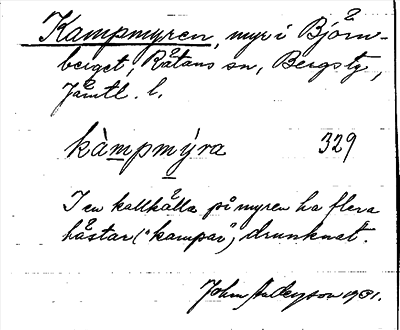 Kampmyren, myr i Björn-
berget, Rätans sn, Bergs tg,
Jämtl. l.
kàmpmýra 329
I en kallkälla på myren ha flera
hästar ("kampar", drunknat.
John Anderson 1931.